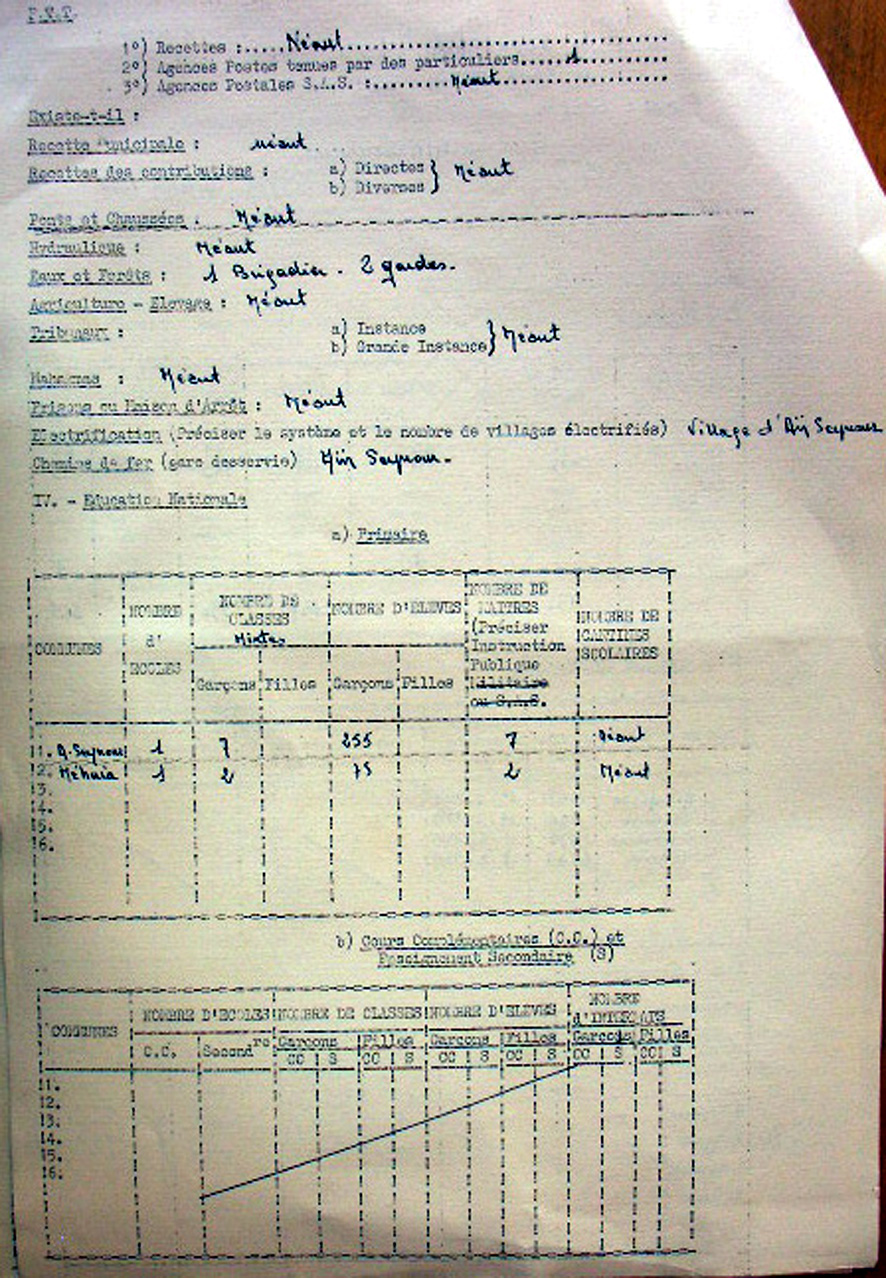 P.T.T.
1°) Recettes :..... Néant
2°) Agences Postes tenues par des particuliers..... 1
3°) Agences Postales S.A.S. :........ Néant
Existe-t-il :
Recette Municipale : néant
Recettes des contributions : a) Directes } Néant
b) Diverses
Ponts et Chaussées : Néant
Hydraulique : Néant
Eaux et Forêts : 1 Brigadier - 2 gardes.
Agriculture - Elevage : Néant
Tribunaux : a) Instance } Néant
b) Grande Instance
Mahakmas : Néant
Prisons ou Maison d'Arrêt : Néant
Electrification (Préciser le système et le nombre de villages électrifiés) Village d'Aïn Seynour
Chemins de fer (gare desservie) Aïn Seynour -
IV. - Education Nationale
a) Primaire
COMMUNES
NOMBRE d' ECOLES
NOMBRE DE CLASSES Mixtes
Garçons Filles
NOMBRE D'ELEVES
Garçons Filles
NOMBRE DE MAITRES (Préciser Instruction Publique Militaire ou S.A.S.
NOMBRE DE CANTINES SCOLAIRES
1. A. Seynour 1 7 255 7 Néant
2. 1 2 75 2 Néant
3.
4.
5.
6.
b) Cours Complémentaires (C.C.) et
Enseignement Secondaire (S)
COMMUNES
NOMBRE D'ECOLES
C.C. Second re
NOMBRE DE CLASSES
Garçons Filles
CC S CC S
NOMBRE D'ELEVES
Garçons Filles
CC S CC S
NOMBRE d'INTERNATS
Garçons Filles
CC S CC S
1.
2.
3.
4.
5.
6.